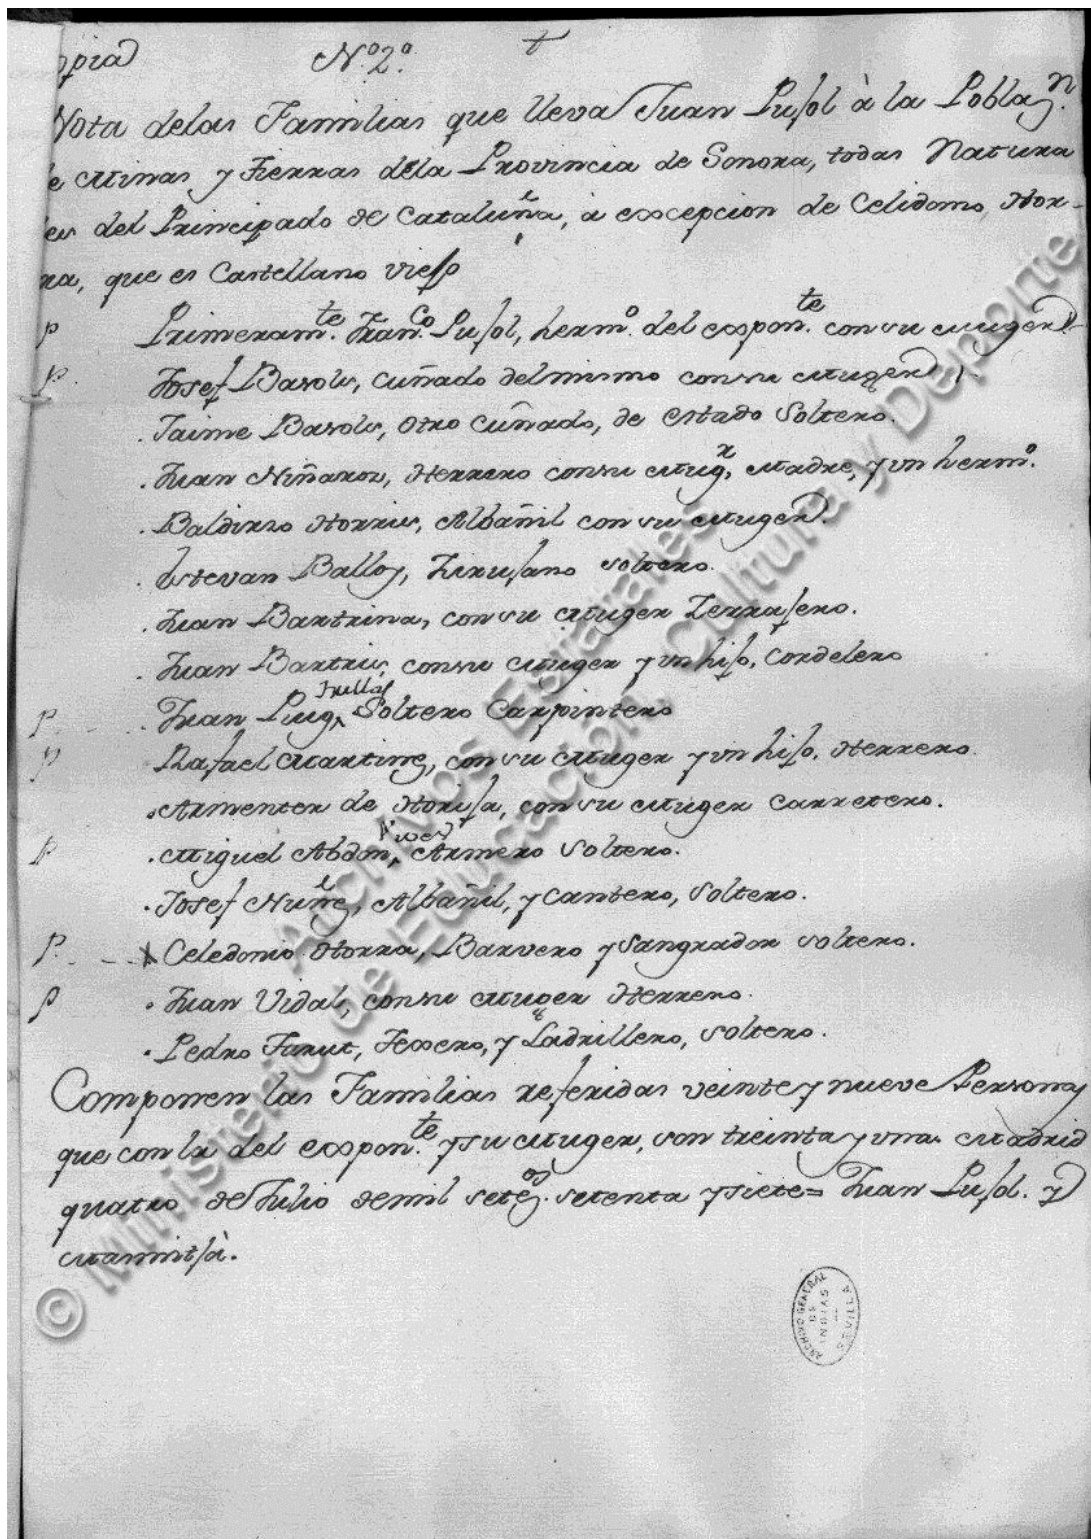 opia Nº 2º †
Nota delas Familias que lleva Juan Pujol à la Poblazn.
de Minas y Tierras dela Provincia de Sonora, todas Natura
les del Principado de Cataluña, à excepcion de Celidomo Hor-
na, que es Castellano viejo
P Primeramte. Franco. Pujol, hermo. del exponte. con su Muger.
P. Josef Basols, Cuñado del mismo con su Muger.
. Jaime Basols, otro Cuñado, de estado Soltero.
. Juan Niñaroz, Herrero con su Mugr, Madre, y un hermo.
. Baldirio Horrius, Albañil con su Muger.
. Estevan Balloy, Zirujano soltero.
. Juan Bartrina, con su Muger Zerrajero.
. Juan Bartrius, con su Muger y un hijo, Cordelero
P. . Juan Puig, Jullas Soltero Carpintero
P Rafael Marting, con su Muger y un hijo. Herrero.
. Armenter de Horisa, con su Muger Carretero.
P . Miguel Abdon, Armero Soltero.
. Josef Nuñez, Albañil, y Cantero, Soltero.
P. X Celedonio Horra, Barvero y Sangrador soltero.
P . Juan Vidal, con su Muger Herrero.
. Pedro Farut, Texero, y Ladrillero, soltero.
Componen las Familias referidas veinte y nueve Personas
que con la del exponte. y su Muger, son treinta y una. Madrid
quatro de Julio de mil setezos. setenta y siete = Juan Pujol. y
Mamitjà.
ARCHIVO GENERAL DE INDIAS SEVILLA
© Ministerio de Educación, Cultura y Deporte
Archivos Estatales